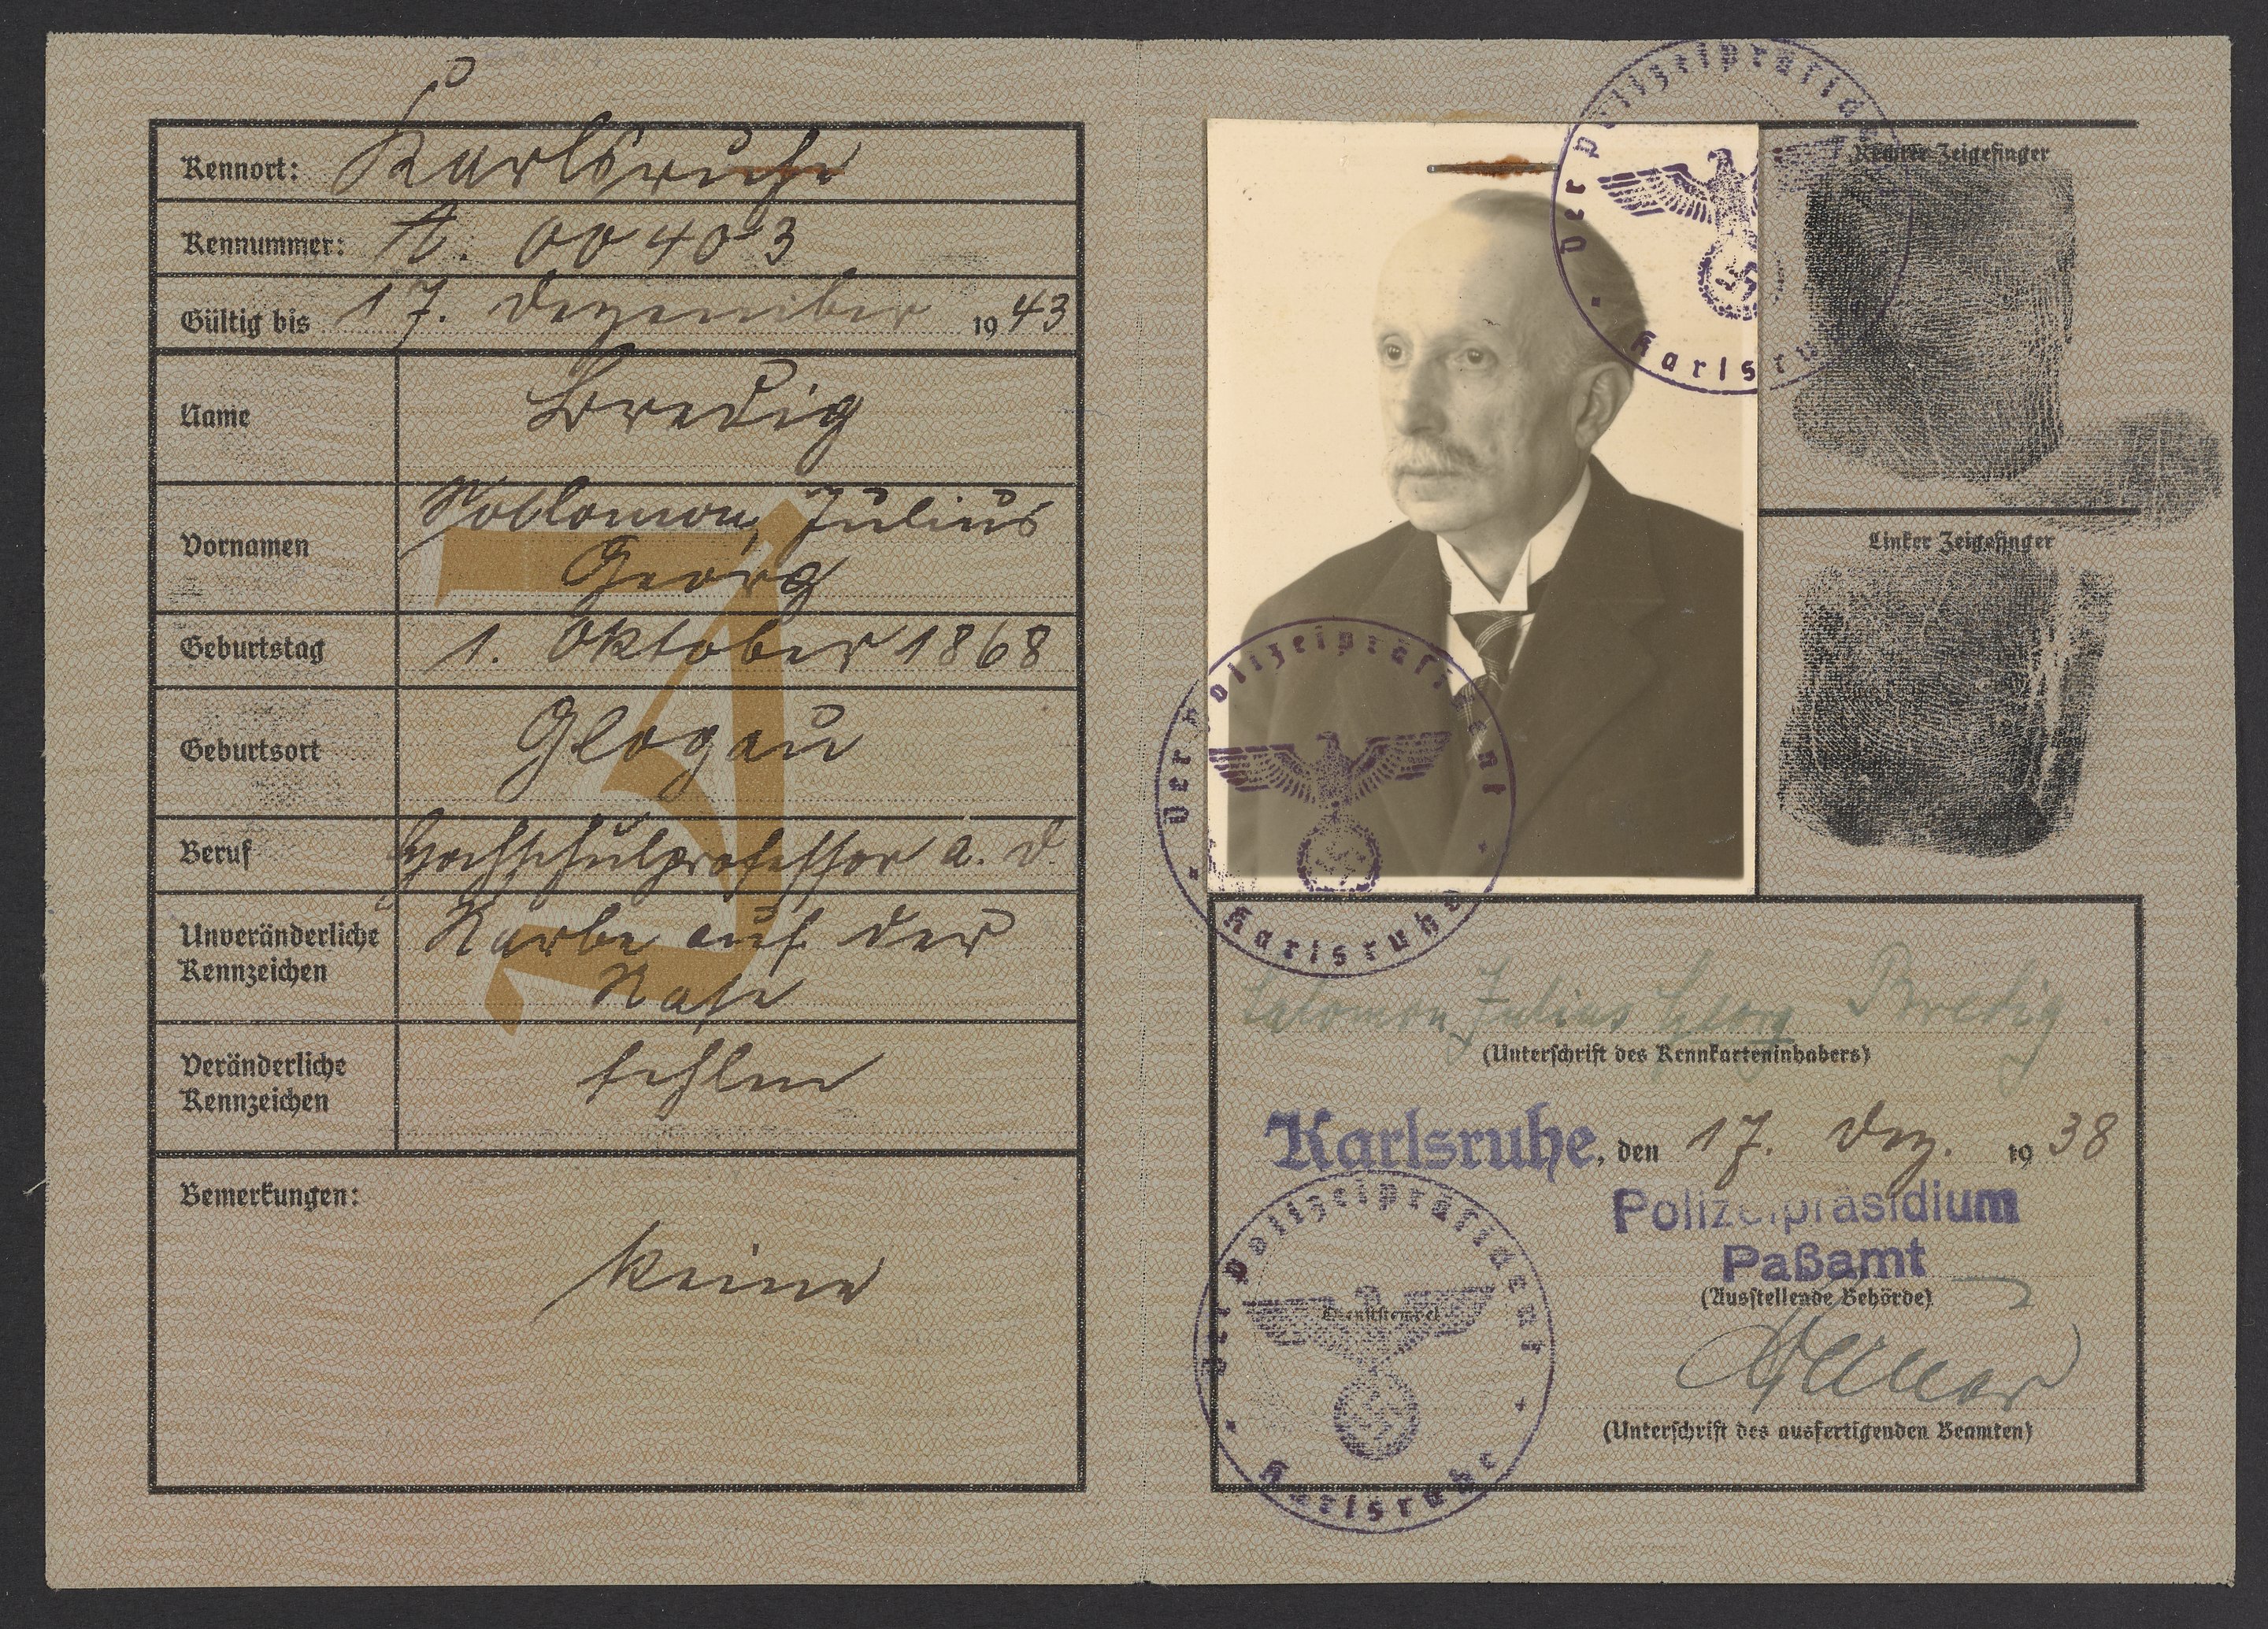 Kennort: Karlsruhe
Kennummer: A. 00403
Gültig bis 17. Dezember 1943
Name Bredig
Vornamen Salomon, Julius
Georg
Geburtstag 1. Oktober 1868
Geburtsort Glogau
Beruf Hochschulprofessor a. D.
Unveränderliche Kennzeichen Narbe auf der
Nase
Veränderliche Kennzeichen fehlen
Bemerkungen:
keine
J
Der Polizeipräsident
Karlsruhe
Rechter Zeigefinger
Linker Zeigefinger
Der Polizeipräsident
Karlsruhe
Salomon Julius Georg Bredig
(Unterschrift des Kennkarteninhabers)
Karlsruhe, den 17. Dez. 1938
Polizeipräsidium
Paßamt
(Ausstellende Behörde)
Der Polizeipräsident
Dienststempel
Karlsruhe
(Unterschrift des ausfertigenden Beamten)